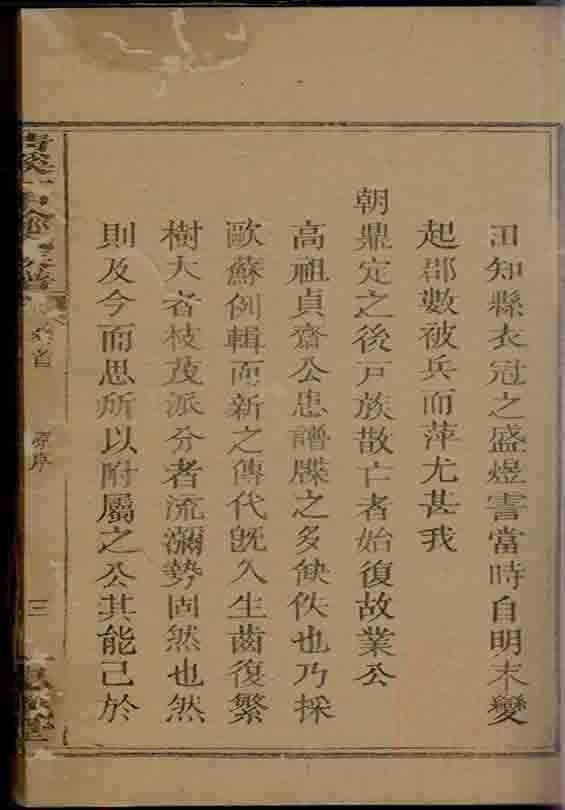 田知縣衣冠之盛煜害當時自明末變
起郡數被兵而萍尤甚我
朝鼎定之後戸族散亡者始復故業公
高祖貞齋公患譜牒之多缺佚也乃採
歐蘇例輯而新之傳代旣久生齒復繁
樹大者枝茂派分者流瀰勢固然也然
則及今而思所以附屬之公其能已於
卷首
原序
三